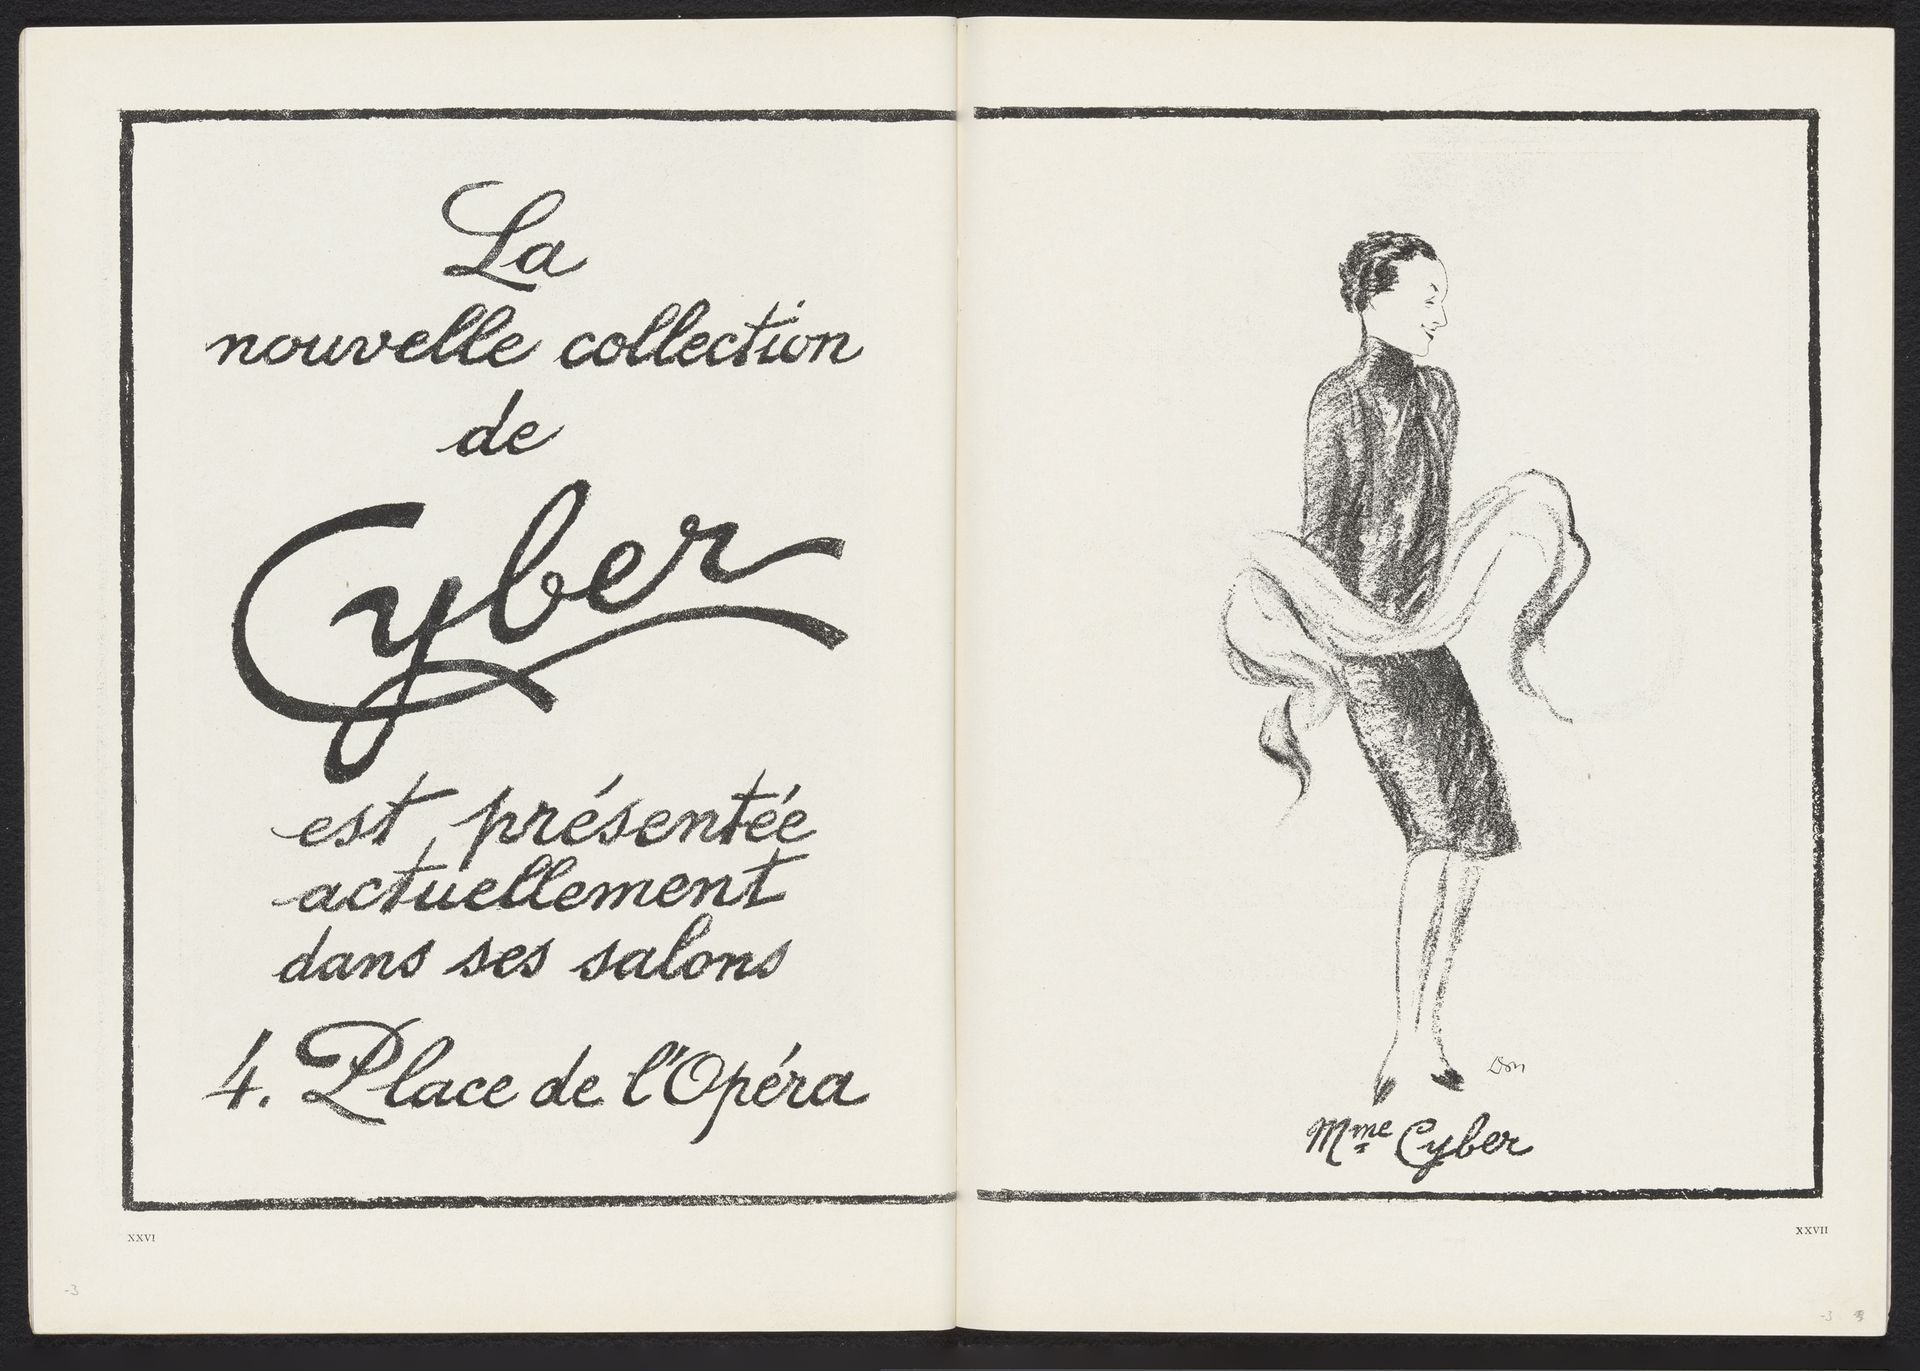 La
nouvelle collection
de
Cyber
est présentée
actuellement
dans ses salons
4. Place de l'Opéra
XXVI
-3
Don
Mme Cyber
XXVII
-3